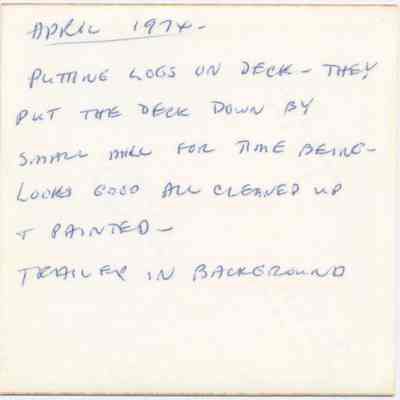 APRIL 1974-
PUTTING LOGS ON DECK - THEY
PUT THE DECK DOWN BY
SMALL MILL FOR TIME BEING-
LOOKS GOOD ALL CLEANED UP
+ PAINTED -
TRAILER IN BACKGROUND